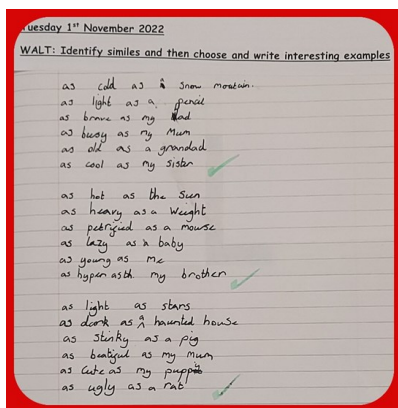 Tuesday 1st November 2022
WALT: Identify similes and then choose and write interesting examples
as cold as a snow moutain.
as light as a pencil
as brave as my dad
as busy as my Mum
as old as a grandad
as cool as my sister
as hot as the Sun
as heavy as a Weight
as petrified as a mouse
as lazy as a baby
as young as me
as hyper as th my brother
as light as stars
as dark as a haunted house
as stinky as a pig
as beatiful as my mum
as cute as my
as ugly as a rat